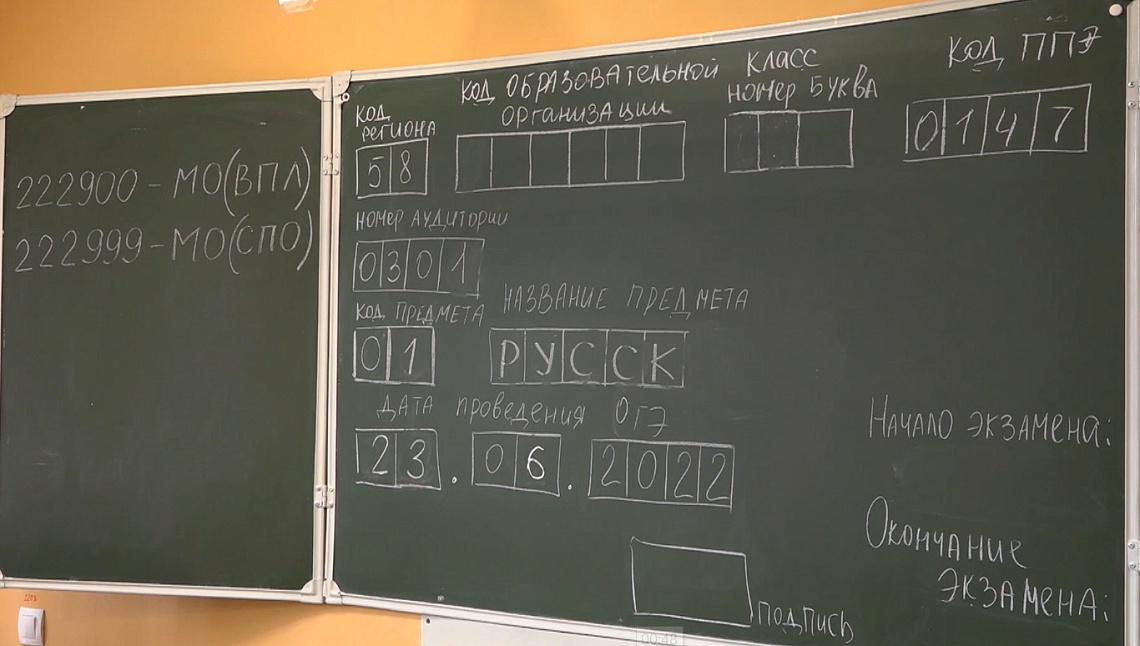 222900 - МО(ВПЛ)
222999 - МО(СПО)
КОД РЕГИОНА
58
КОД ОБРАЗОВАТЕЛЬНОЙ
ОРГАНИЗАЦИИ
КЛАСС
НОМЕР БУКВА
КОД ППЭ
0147
НОМЕР АУДИТОРИИ
0301
КОД ПРЕДМЕТА
01
НАЗВАНИЕ ПРЕДМЕТА
РУССК
ДАТА ПРОВЕДЕНИЯ ОГЭ
23.06.2022
НАЧАЛО ЭКЗАМЕНА:
ОКОНЧАНИЕ
ЭКЗАМЕНА:
ПОДПИСЬ